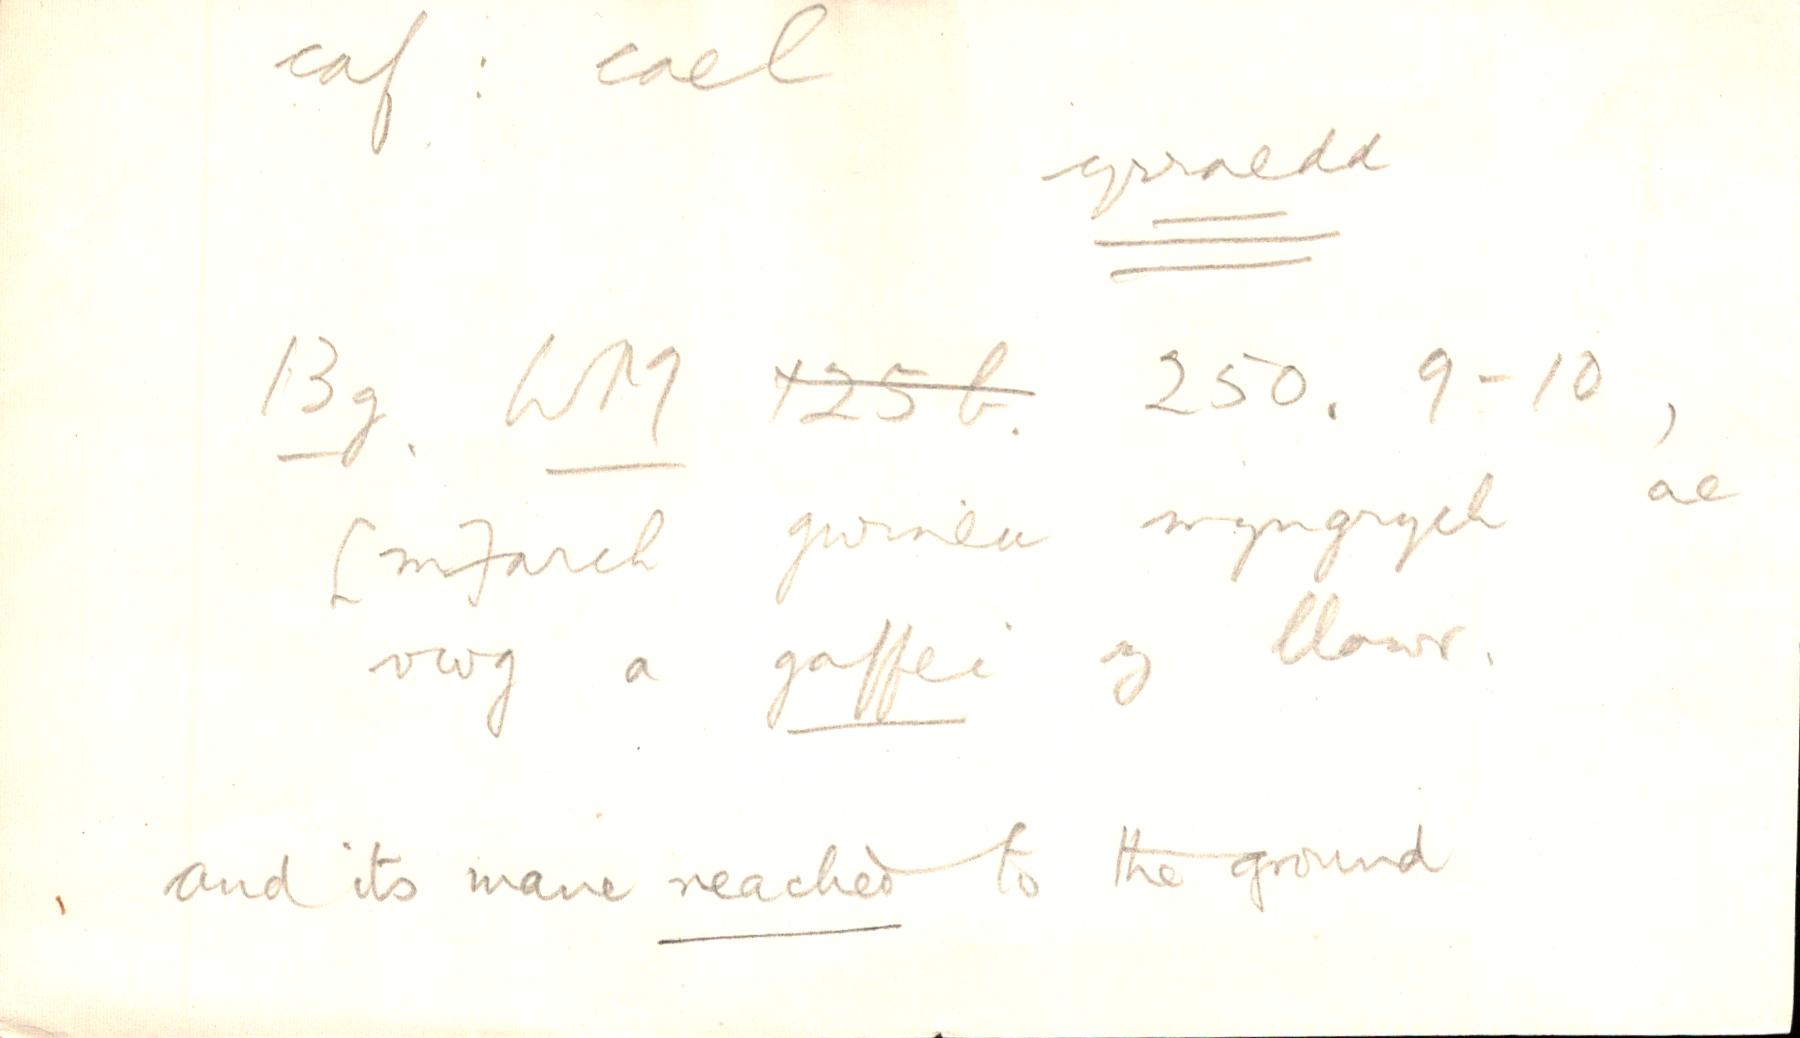 caf : cael
cyrraedd
13g. WM 125 b. 250. 9-10,
[m]arch gwineu myngrych ae
vwg a gaffei y llawr.
and its mane reached to the ground